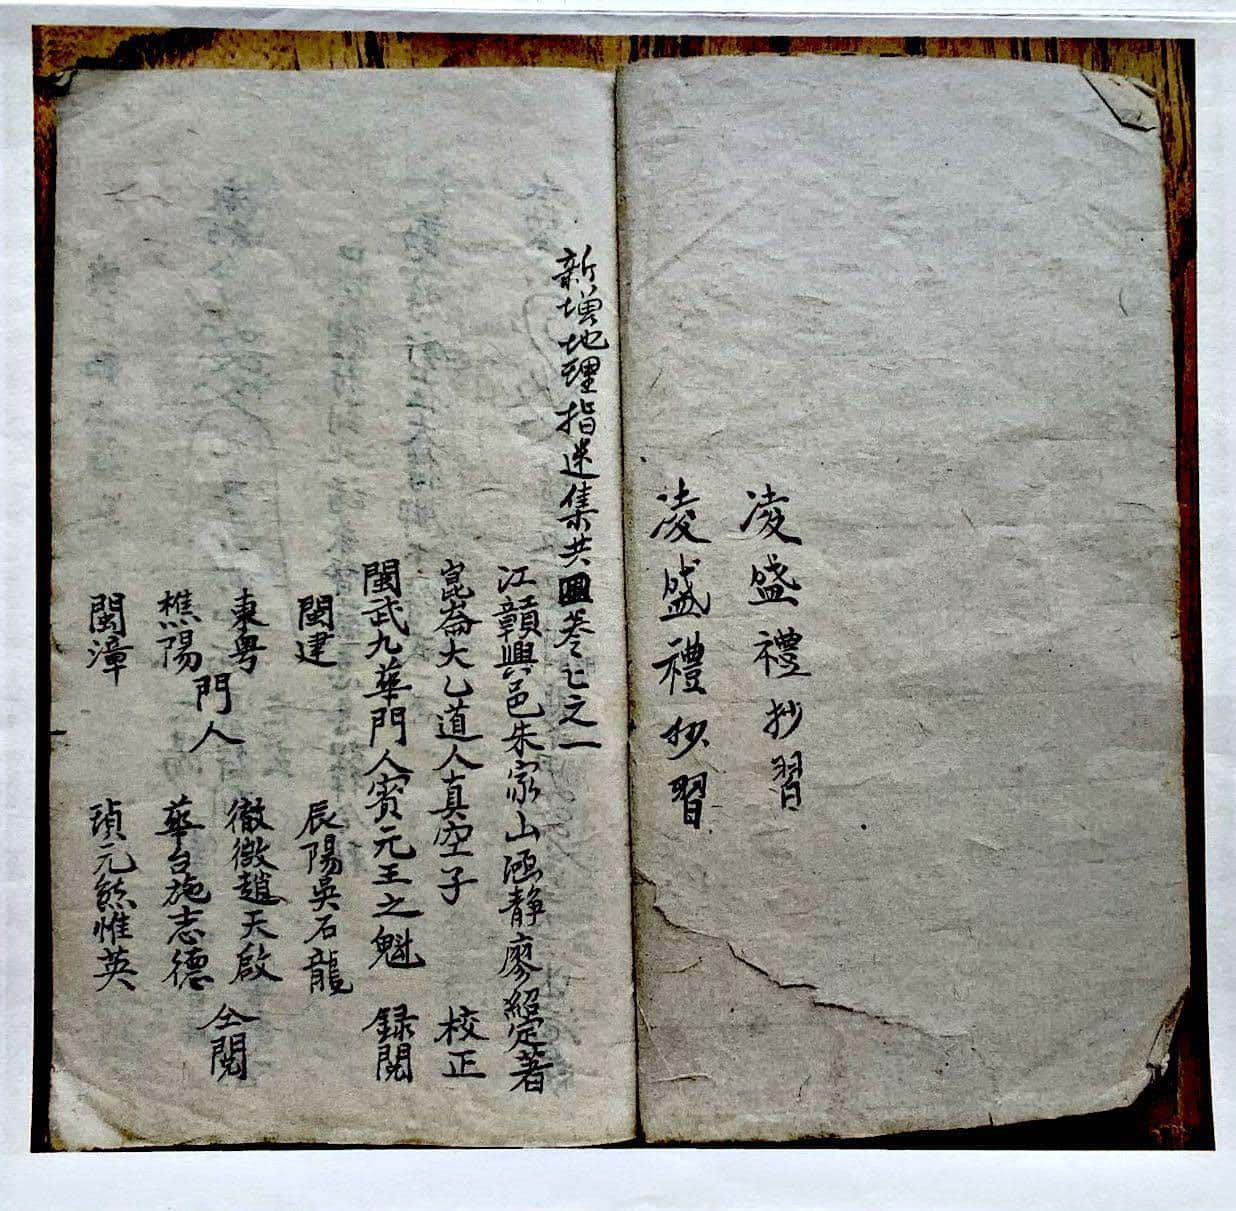 凌盛禮抄習
凌盛禮抄習
新增地理指迷集共四卷之一
江贛興邑朱家山涵静廖紹定著
崑崙大乙道人真空子 校正
閩武九華門人賓元王之魁 録閱
閩建 辰陽吳石龍
東粤 徹微趙天啟
門人 仝閱
樵陽 華台施志德
閩漳 瑱元熊惟英